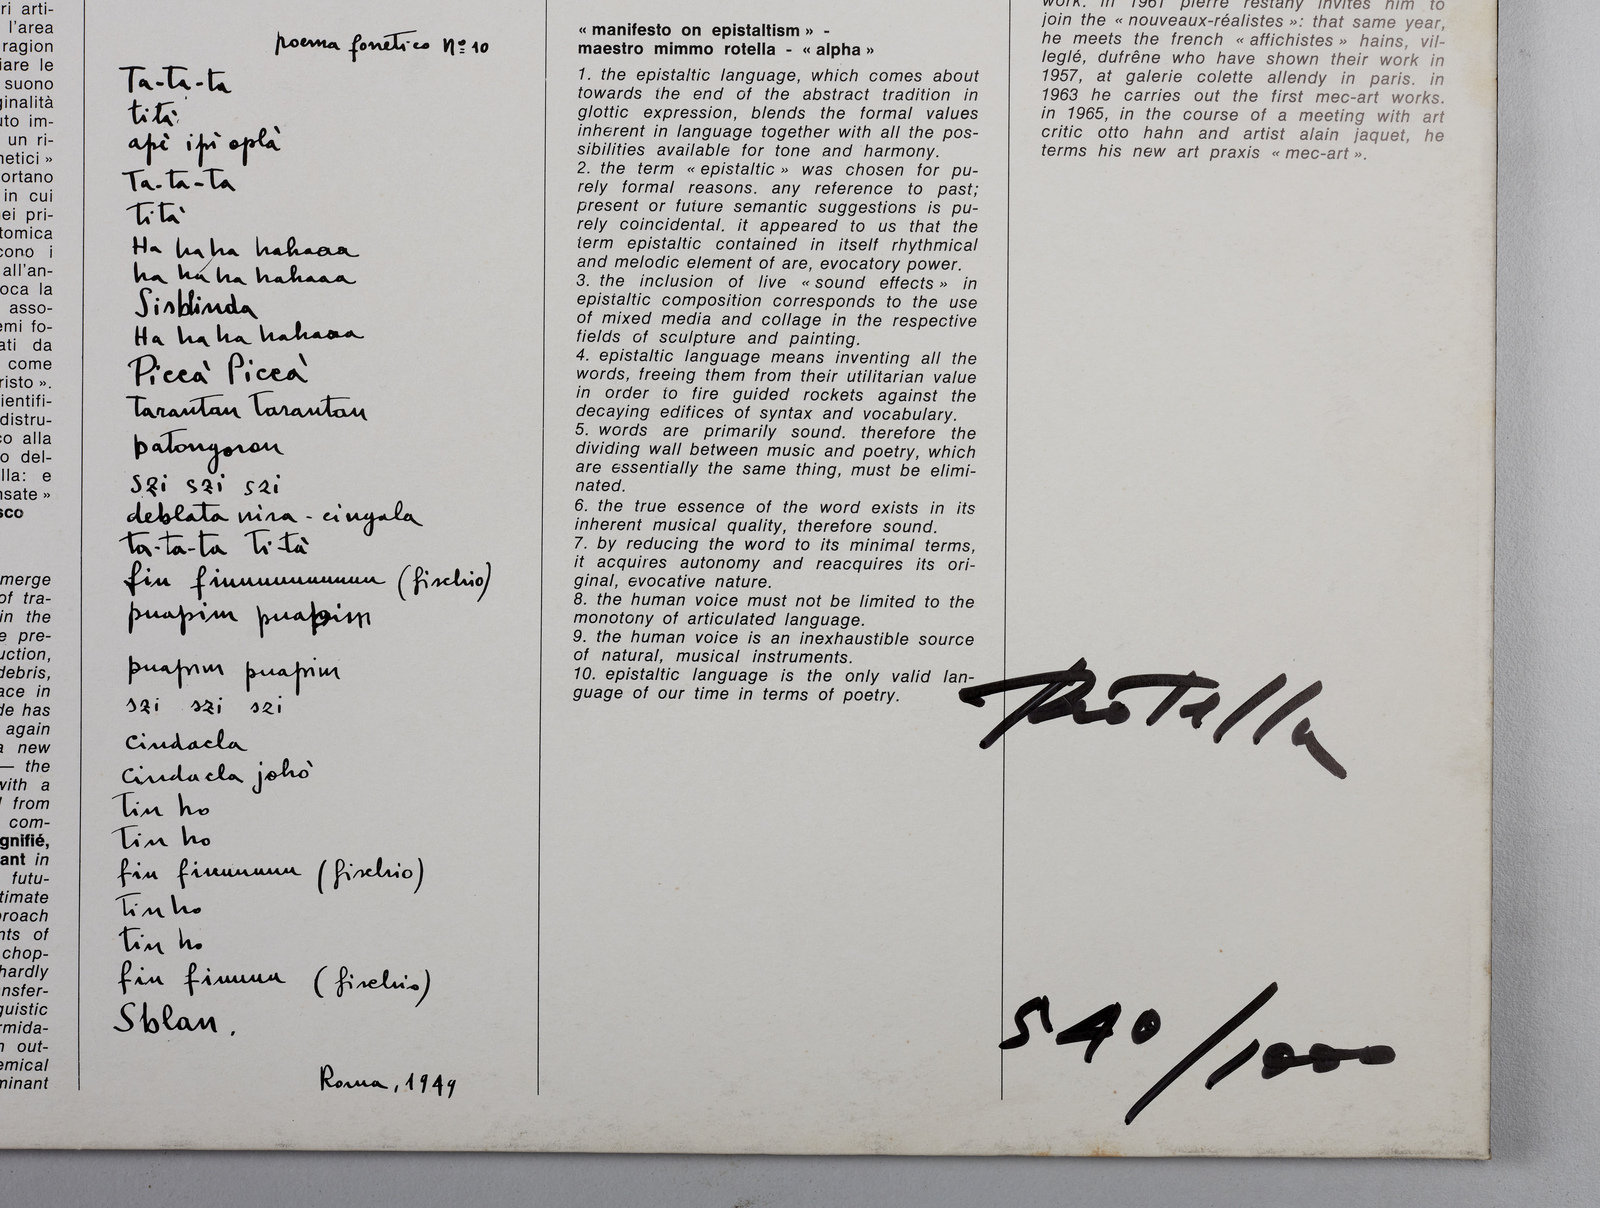 ri arti-
l'area
ragion
iare le
suono
ginalità
uto im-
un ri-
netici »
ortano
in cui
nei pri-
tomica
cono i
all'an-
oca la
asso-
emi fo-
ati da
come
risto ».
ientifi-
distru-
co alla
o del-
lla: e
nsate »
sco
merge
of tra-
in the
e pre-
uction,
debris,
ace in
de has
again
a new
— the
with a
from
com-
gnifié,
ant in
futu-
timate
proach
nts of
chop-
hardly
nsfer-
guistic
rmida-
n out-
emical
minant
poema fonetico Nº 10
Ta-ta-ta
tità
apè ipì oplà
Ta-ta-ta
tità
Ha ha ha hahaaa
ha ha ha hahaaa
Sisblinda
Ha ha ha hahaaa
Piccà Piccà
Tarantan Tarantan
patongoron
szi szi szi
deblata nira - cingala
ta-ta-ta ti-tà
fiu fiuuuuuuuuuu (fischio)
puapim puapim
puapim puapim
szi szi szi
cindacla
cindacla johò
Tin ho
Tin ho
fiu fiuuuuuuu (fischio)
Tin ho
tin ho
fiu fiuuuuu (fischio)
Sblan.
Roma, 1949
« manifesto on epistaltism » -
maestro mimmo rotella - « alpha »
1. the epistaltic language, which comes about
towards the end of the abstract tradition in
glottic expression, blends the formal values
inherent in language together with all the pos-
sibilities available for tone and harmony.
2. the term « epistaltic » was chosen for pu-
rely formal reasons. any reference to past;
present or future semantic suggestions is pu-
rely coincidental. it appeared to us that the
term epistaltic contained in itself rhythmical
and melodic element of are, evocatory power.
3. the inclusion of live « sound effects » in
epistaltic composition corresponds to the use
of mixed media and collage in the respective
fields of sculpture and painting.
4. epistaltic language means inventing all the
words, freeing them from their utilitarian value
in order to fire guided rockets against the
decaying edifices of syntax and vocabulary.
5. words are primarily sound. therefore the
dividing wall between music and poetry, which
are essentially the same thing, must be elimi-
nated.
6. the true essence of the word exists in its
inherent musical quality, therefore sound.
7. by reducing the word to its minimal terms,
it acquires autonomy and reacquires its ori-
ginal, evocative nature.
8. the human voice must not be limited to the
monotony of articulated language.
9. the human voice is an inexhaustible source
of natural, musical instruments.
10. epistaltic language is the only valid lan-
guage of our time in terms of poetry.
work. in 1961 pierre restany invites him to
join the « nouveaux-réalistes »: that same year,
he meets the french « affichistes » hains, vil-
leglé, dufrêne who have shown their work in
1957, at galerie colette allendy in paris. in
1963 he carries out the first mec-art works.
in 1965, in the course of a meeting with art
critic otto hahn and artist alain jaquet, he
terms his new art praxis « mec-art ».
Rotella
540/1000